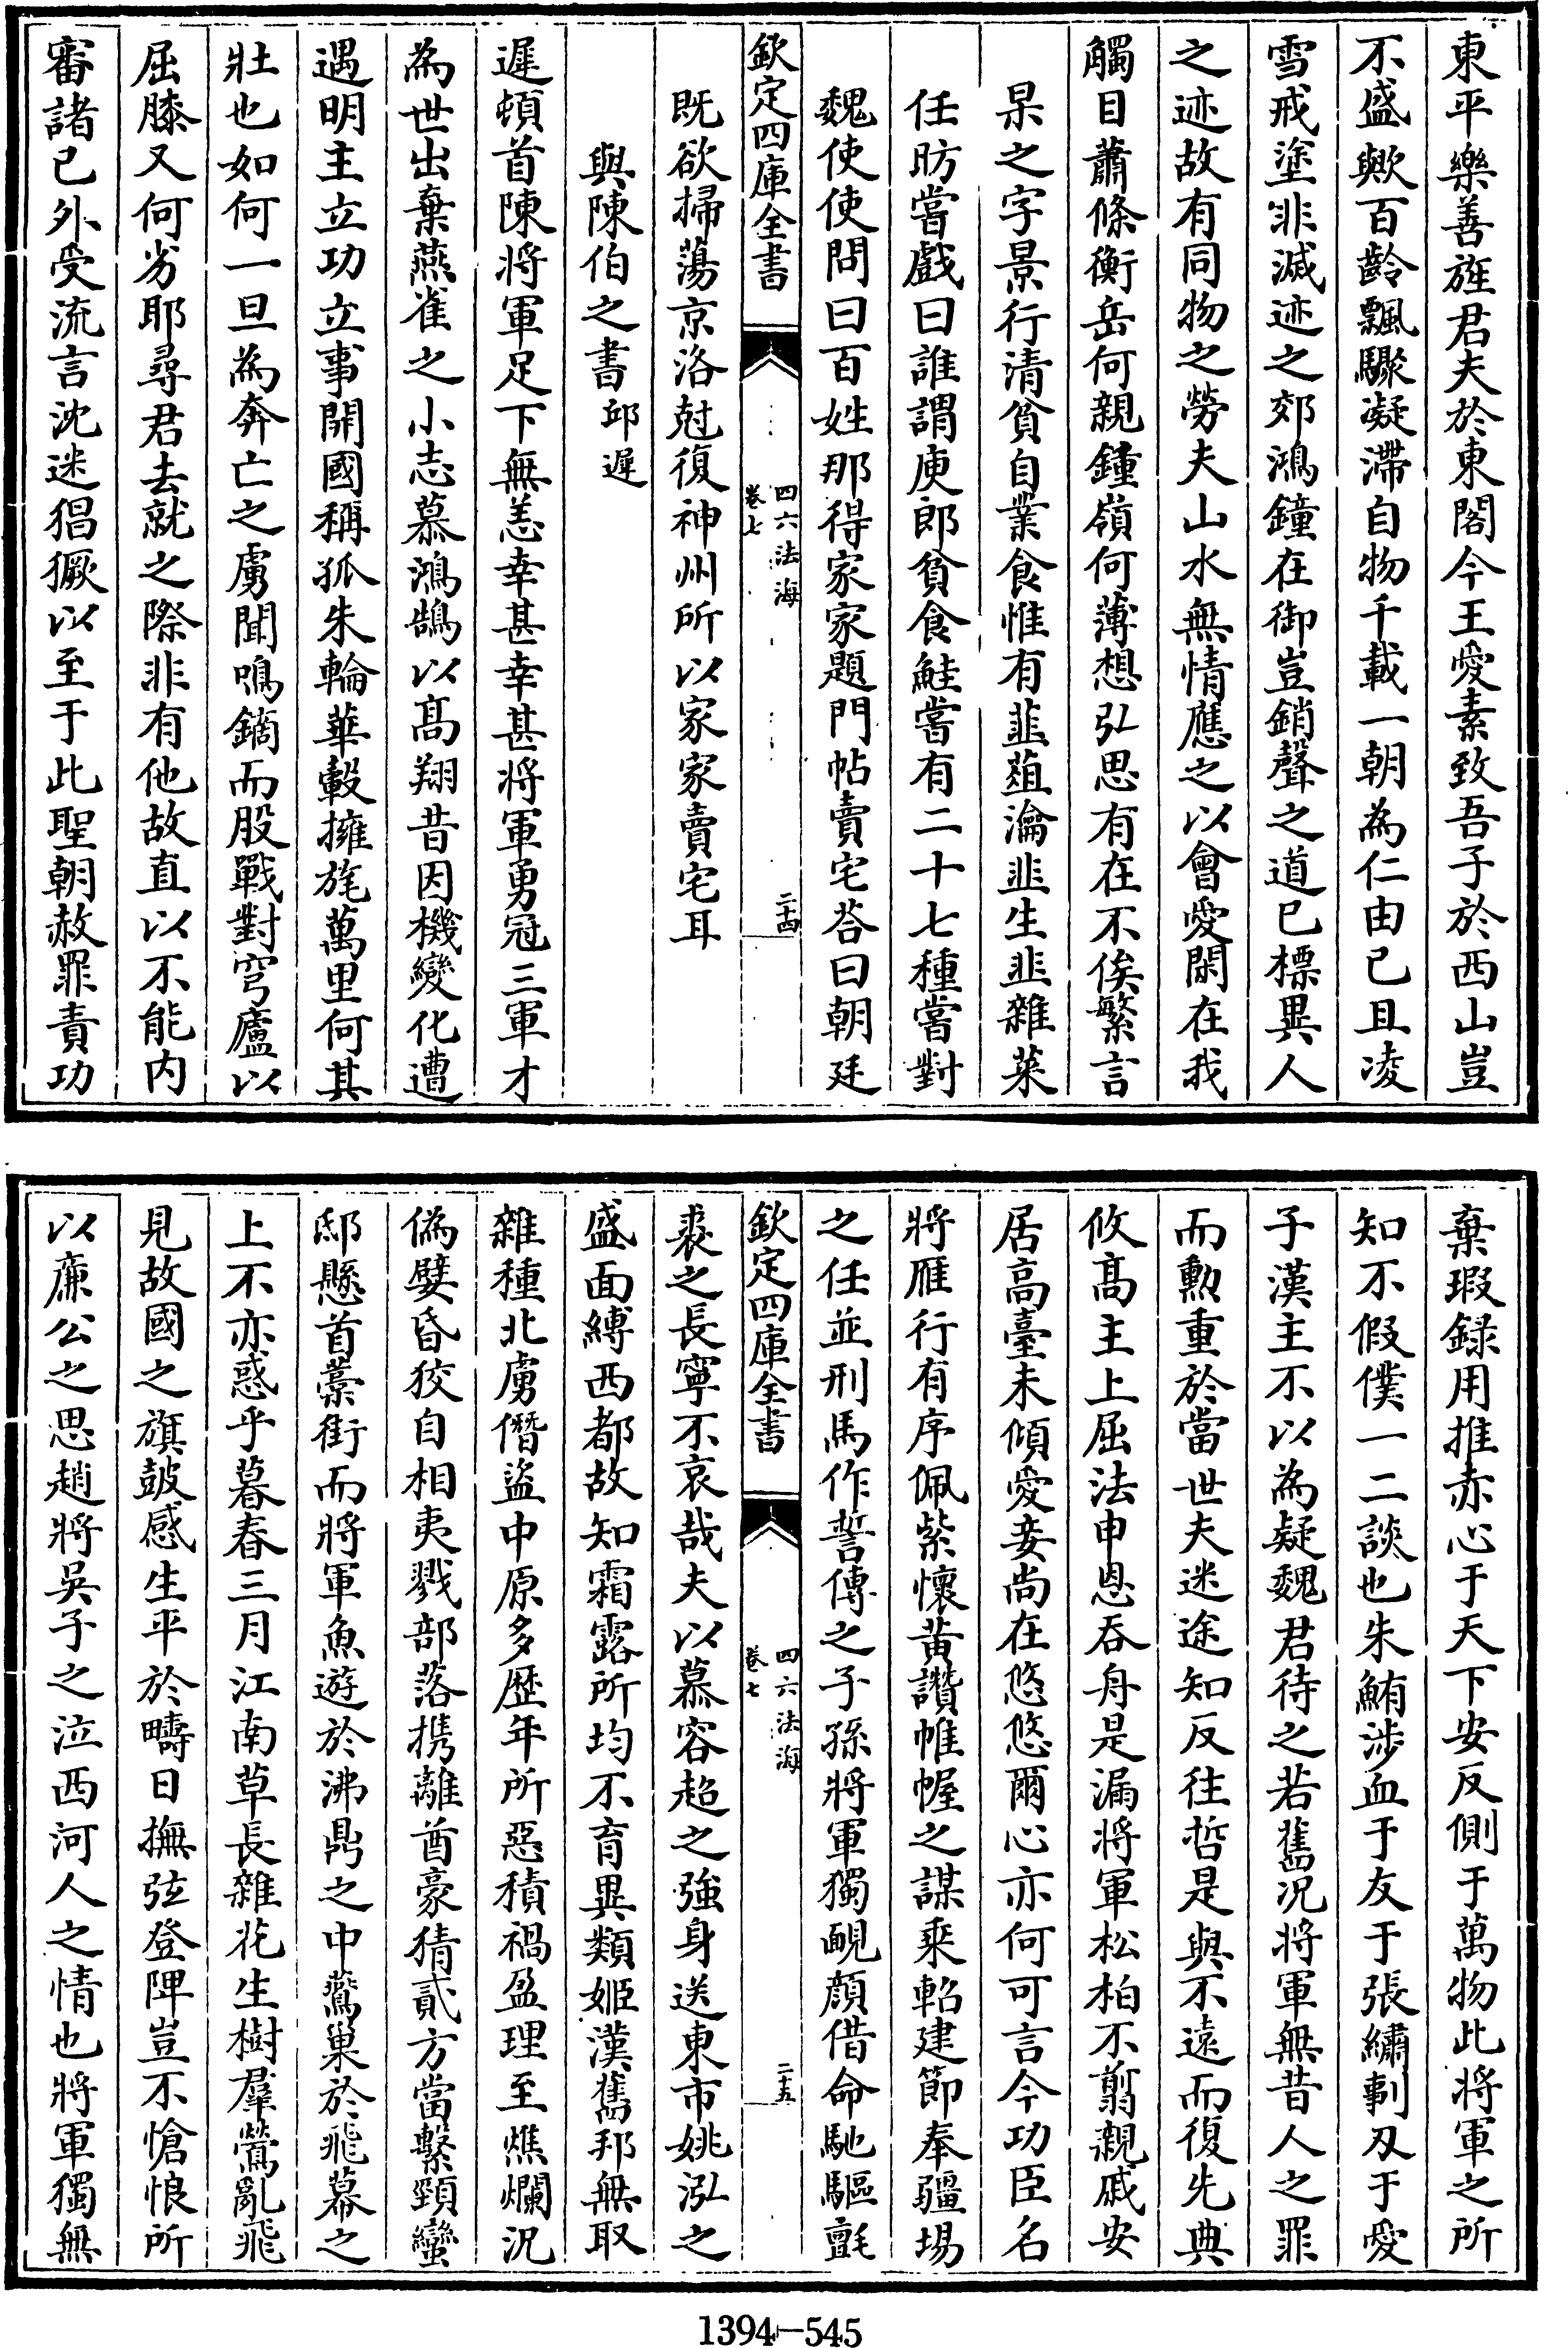 東平樂善旌君夫於東閤今王愛素致吾子於西山豈
不盛歟百齡飄驟凝滯自物千載一朝為仁由已且凌
雪戒塗非滅迹之郊鴻鐘在御豈銷聲之道已標異人
之迹故有同物之勞夫山水無情應之以會愛閑在我
觸目蕭條衡岳何親鍾嶺何薄想弘思有在不俟繁言
杲之字景行清貧自業食惟有韮葅瀹韮生韮雜菜
任昉嘗戲曰誰謂庾郎貧食鮭嘗有二十七種嘗對
魏使使問曰百姓那得家家題門帖賣宅荅曰朝廷
欽定四庫全書
四六法海
卷七
二十四
既欲掃蕩京洛尅復神州所以家家賣宅耳
與陳伯之書 邱遲
遲頓首陳將軍足下無恙幸甚幸甚將軍勇冠三軍才
為世出棄燕雀之小志慕鴻鵠以髙翔昔因機變化遭
遇明主立功立事開國稱孤朱輪華轂擁旄萬里何其
壯也如何一旦為奔亡之虜聞鳴鏑而股戰對穹廬以
屈膝又何劣耶尋君去就之際非有他故直以不能内
審諸已外受流言沈迷猖獗以至于此聖朝赦罪責功
棄瑕録用推赤心于天下安反側于萬物此將軍之所
知不假僕一二談也朱鮪涉血于友于張繡剚刃于愛
子漢主不以為疑魏君待之若舊况將軍無昔人之罪
而勲重於當世夫迷途知反往哲是與不逺而復先典
攸髙主上屈法申恩吞舟是漏將軍松柏不翦親戚安
居高臺未傾愛妾尚在悠悠爾心亦何可言今功臣名
將雁行有序佩紫懷黄讚帷幄之謀乘軺建節奉疆埸
之任並刑馬作誓傳之子孫將軍獨靦顔借命馳驅氊
欽定四庫全書
四六法海
卷七
二十五
裘之長寧不哀哉夫以慕容超之強身送東市姚泓之
盛面縛西都故知霜露所均不育異類姬漢舊邦無取
雜種北虜僭盜中原多歴年所惡積禍盈理至燋爛况
偽孽昏狡自相夷戮部落攜離酋豪猜貳方當繫頸蠻
邸懸首藁街而將軍魚遊於沸鼎之中鷰巢於飛幕之
上不亦惑乎暮春三月江南草長雜花生樹羣鶯亂飛
見故國之旗皷感生平於疇日撫弦登陴豈不愴悢所
以廉公之思趙將吳子之泣西河人之情也將軍獨無
1394-545